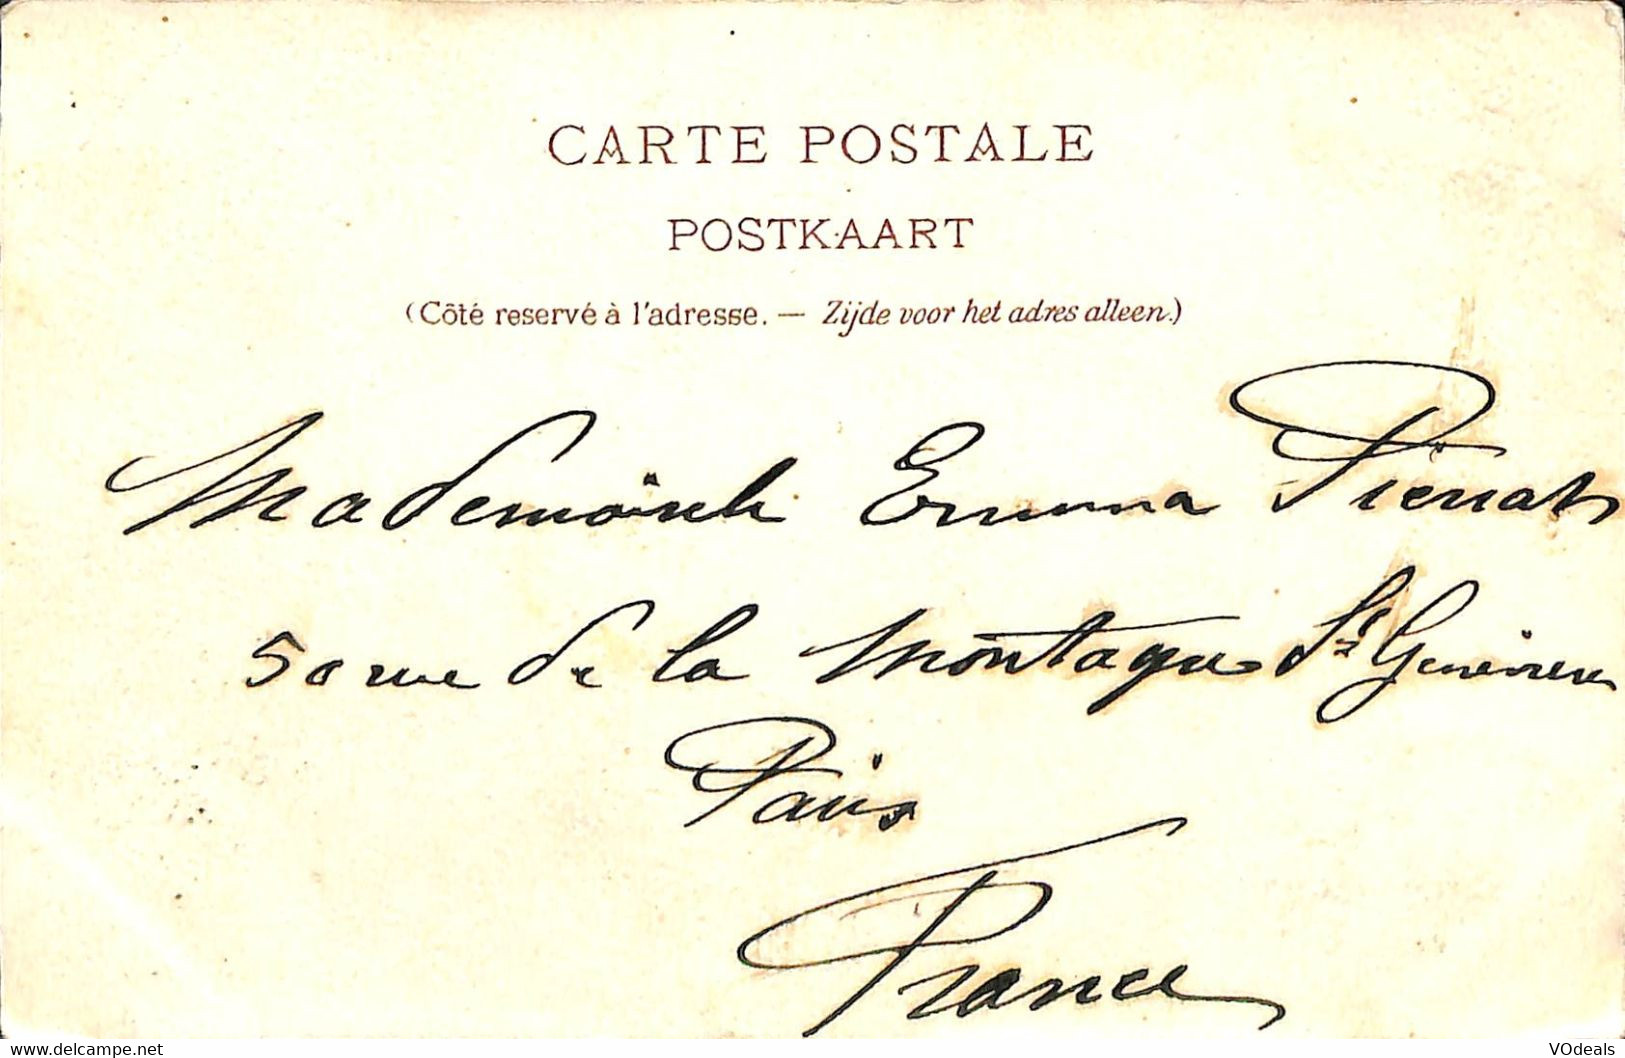 CARTE POSTALE
POSTKAART
(Côté reservé à l'adresse. — Zijde voor het adres alleen.)
Mademoiselle Emma Pierrat
50 rue de la Montagne Ste Geneviève
Paris
France
www.delcampe.net
VOdeals